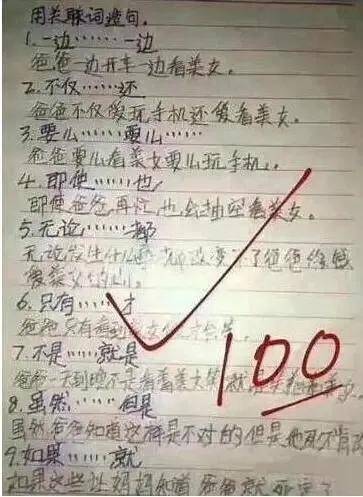 用关联词造句。
1.一边……一边
爸爸一边开车一边看美女。
2.不仅……还
爸爸不仅爱玩手机还爱看美女。
3.要么……要么……
爸爸要么看美女要么玩手机。
4.即使……也
即使爸爸再忙,也会抽空看美女。
5.无论……都
无论发生什么 都改变不了爸爸
爱美女的心。
6.只有……才
爸爸只有看到 女 才会笑。
7.不是……就是
爸爸一天到晚不是看着美女笑就是
8.虽然……但是
虽然爸爸知道这样是不对的但是他
9.如果……就
如果这些让妈妈知道 爸爸就死定了
100